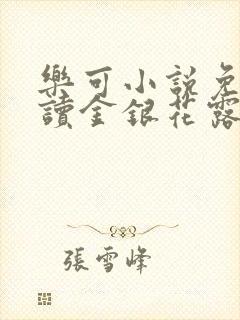 樂可小說免
讀金銀花露
張雪峰